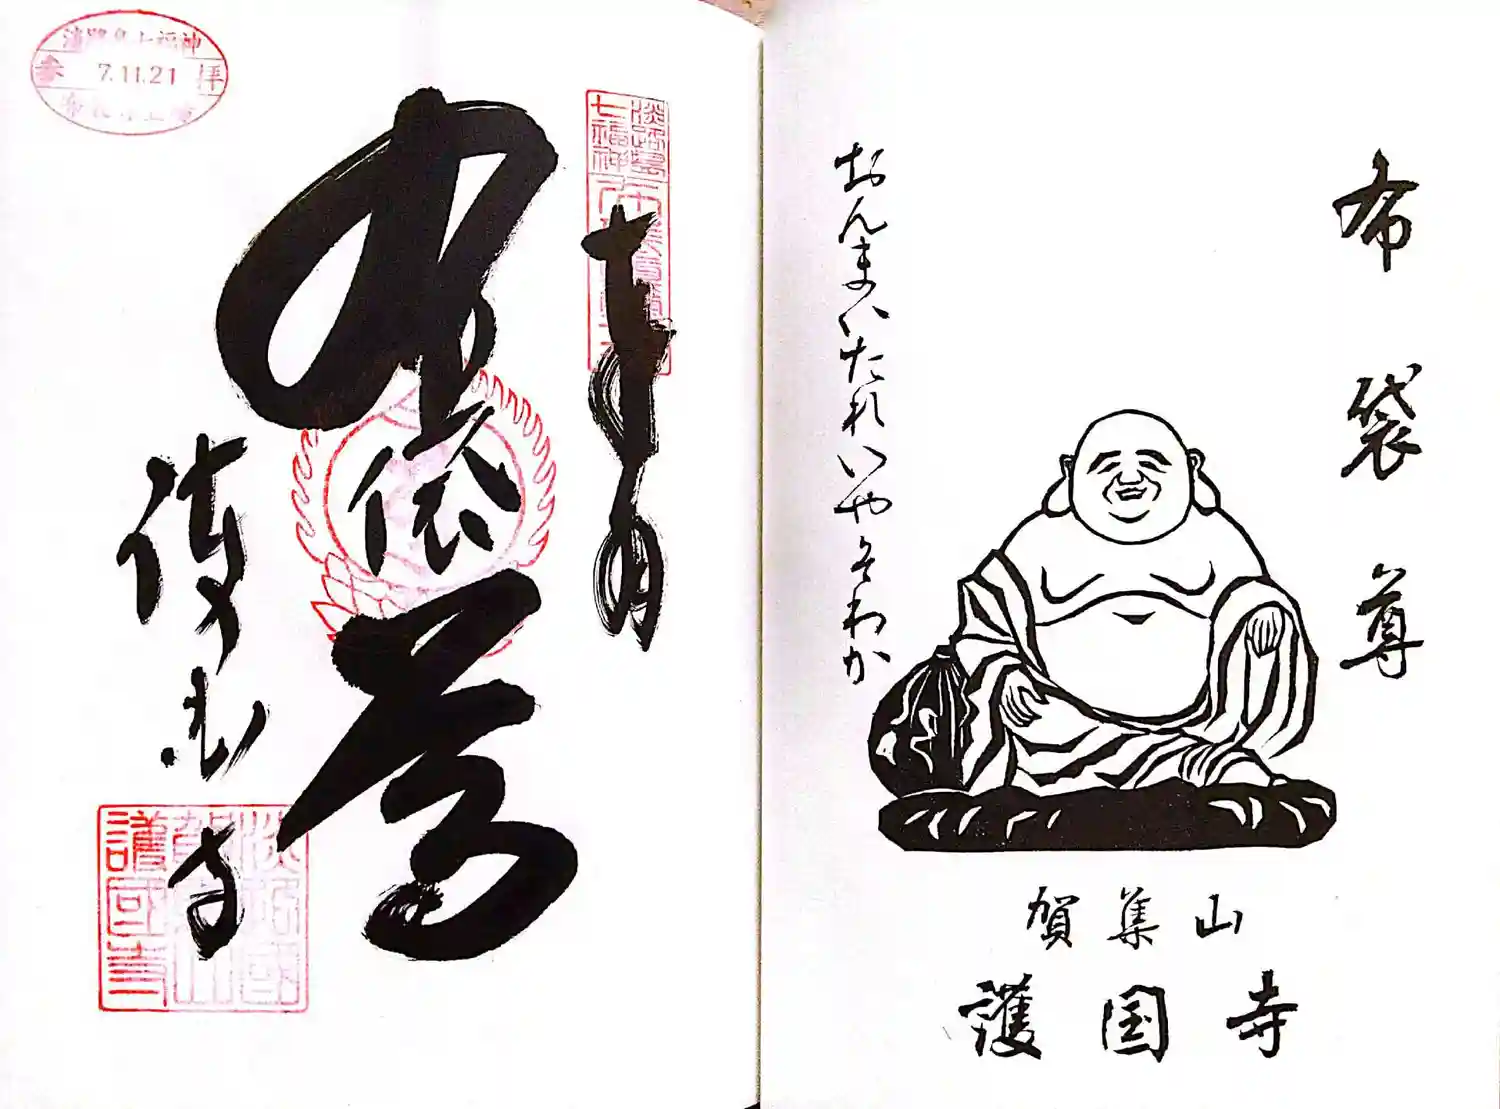 布袋尊
おんまいたれいやそわか
賀集山
護国寺
淡路島七福神
参 7.11.21 拝
淡路島
七福神
布袋尊
護国寺
淡路國
賀集山
護國寺